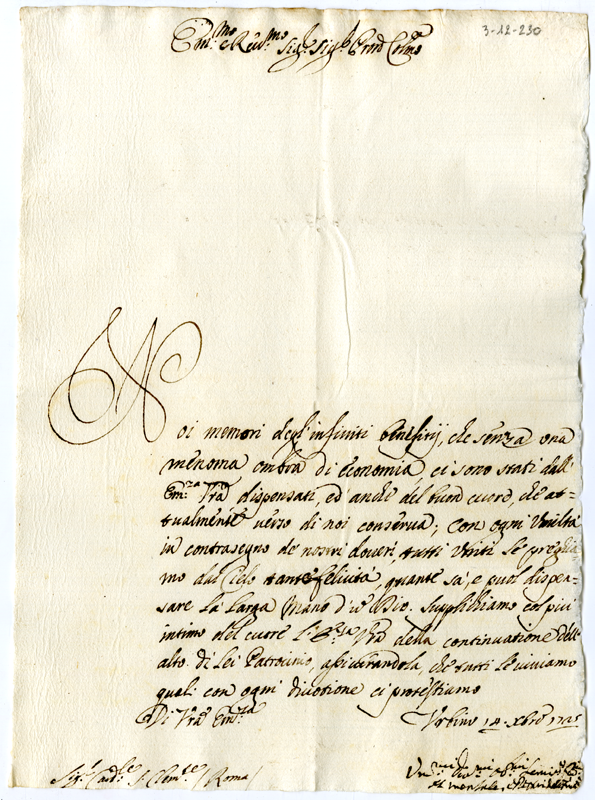 3-12-230
Em.mo e Rev.mo Sig.r Sig.r Pron Colmo
Noi memori degl'infiniti benefizij, che senza una
menoma ombra di economia ci sono stati dall'
Em.za Vra dispensati, ed anche del buon cuore, che at=
tualmente verso di noi conserva; con ogni Umiltà
in contrasegno de nostri doveri, tutti Uniti Le preghia-
mo dal Cielo tante felicità, quante sà, e puol dispen-
sare la Larga Mano d'un Dio. Supplichiamo col più
intimo del cuore l'E.za Vra della continuazione dell'
alto di Lei Patrocinio, assicurandola, che tutti Le viviamo
quali con ogni divozione ci protestiamo
Di Vra Em.za
Urbino 14 Xbre 1725
Sig.r Card.le S. Clem.te / Roma /